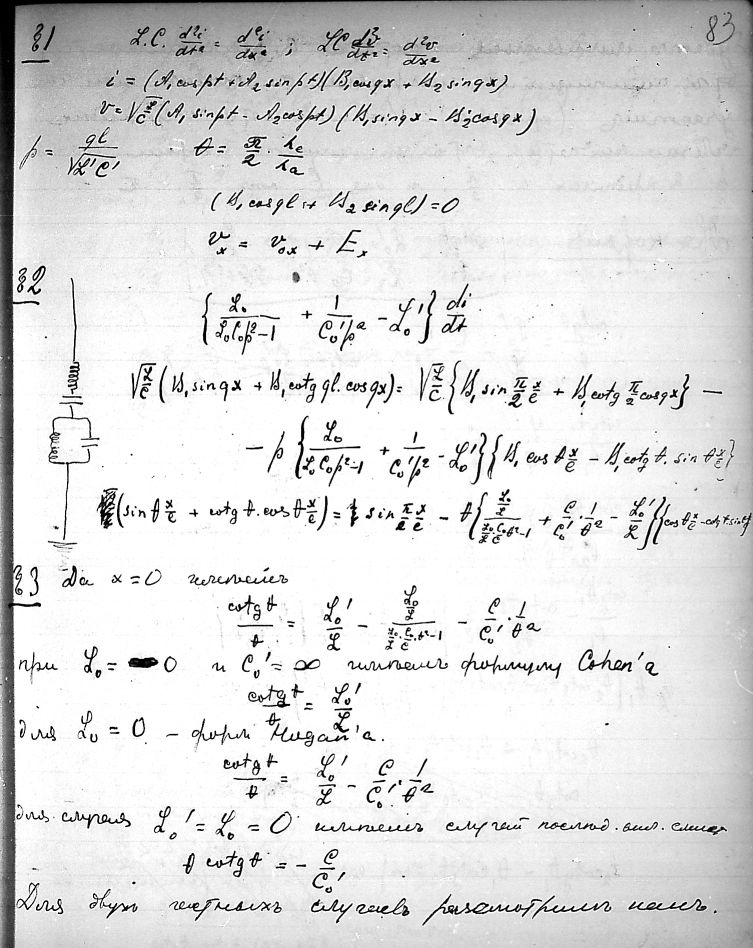 83
§1 L.C. d²i/dt² = d²i/dx² ; LC d²v/dt² = d²v/dx²
i = (A₁ cos pt + A₂ sin pt)(B₁ cos qx + B₂ sin qx)
v = √(L/C) (A₁ sin pt - A₂ cos pt) (B₁ sin qx - B₂ cos qx)
p = ql/√(L'C') θ = π/2 λe/λa
(B₁ cos ql + B₂ sin ql) = 0
vₓ = v₀ₓ + Eₓ
§2
{L₀/(L₀C₀p²-1) + 1/(C₀'p²) - L₀'} di/dt
√(L/C) (B₁ sin qx + B₁ cotg ql. cos qx) = √(L/C) {B₁ sin π/2 x/l + B₁ cotg π/2 cos qx} —
— p {L₀/(L₀C₀p²-1) + 1/(C₀'p²) - L₀'}{B₁ cos θ x/l - B₁ cotg θ. sin θ x/l}
(sin θ x/l + cotg θ. cos θ x/l) = sin π/2 x/l - θ{(L₀/L)/(L₀/L C₀/C θ²-1) + C/C₀' · 1/θ² - L₀'/L}{cos θ x/l - cotg θ sin θ x/l}
§3 Для x = 0 имѣемъ
cotg θ/θ = L₀'/L - (L₀/L)/(L₀/L · C₀/C · θ²-1) - C/C₀' · 1/θ²
при L₀ = 0 и C₀' = ∞ имѣемъ формулу Cohen'a
cotg θ/θ = L₀'/L
для L₀ = 0 - форм
cotg θ/θ = L₀'/L - C/C₀' · 1/θ²
для случая L₀' = L₀ = 0 имѣемъ случай
θ cotg θ = - C/C₀'
Для двухъ частныхъ случаевъ разсмотримъ